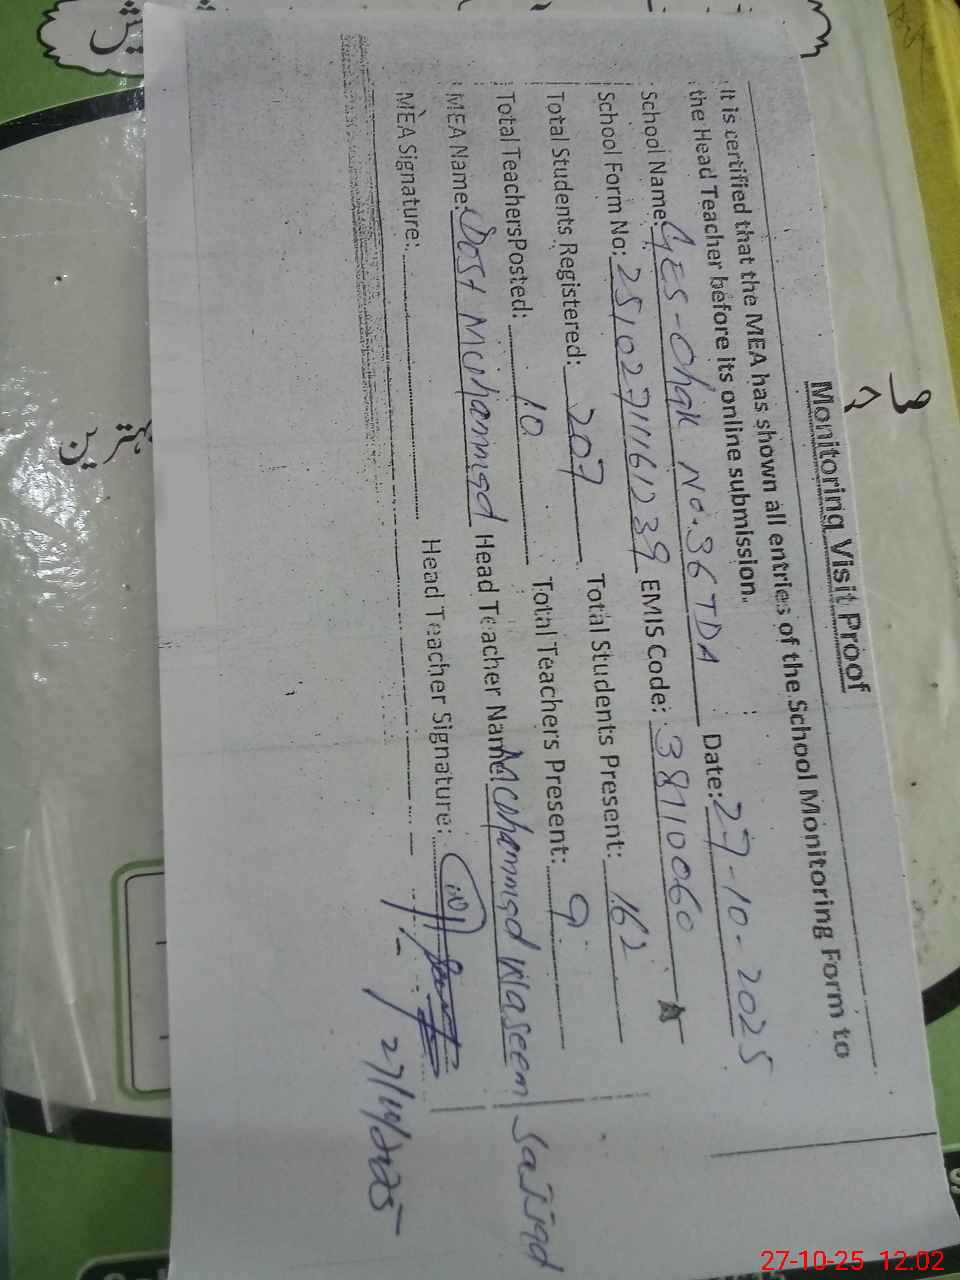 Monitoring Visit Proof
It is certified that the MEA has shown all entries of the School Monitoring Form to
the Head Teacher before its online submission.
School Name: GES-Chak No.36 TDA Date: 27-10-2025
School Form No: 25102711161239 EMIS Code: 38710060
Total Students Registered: 207 Total Students Present: 162
Total Teachers Posted: 10 Total Teachers Present: 9
MEA Name: Dost Muhammad Head Teacher Name Muhammad Waseem Sajjad
MEA Signature: Head Teacher Signature:
27/10/2025
بہترین
27-10-25 12:02